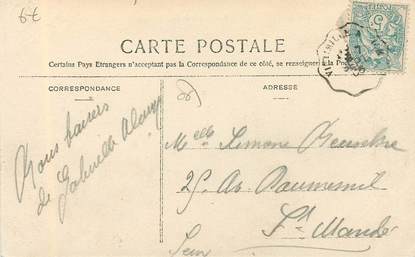 6€
CARTE POSTALE
Certains Pays Etrangers n'acceptant pas la Correspondance de ce côté, se renseigner à la Poste
CORRESPONDANCE
ADRESSE
06
Bons baisers
de Gabrielle
Melle Simone
25 Av. Daumesnil
St Mandé
Seine